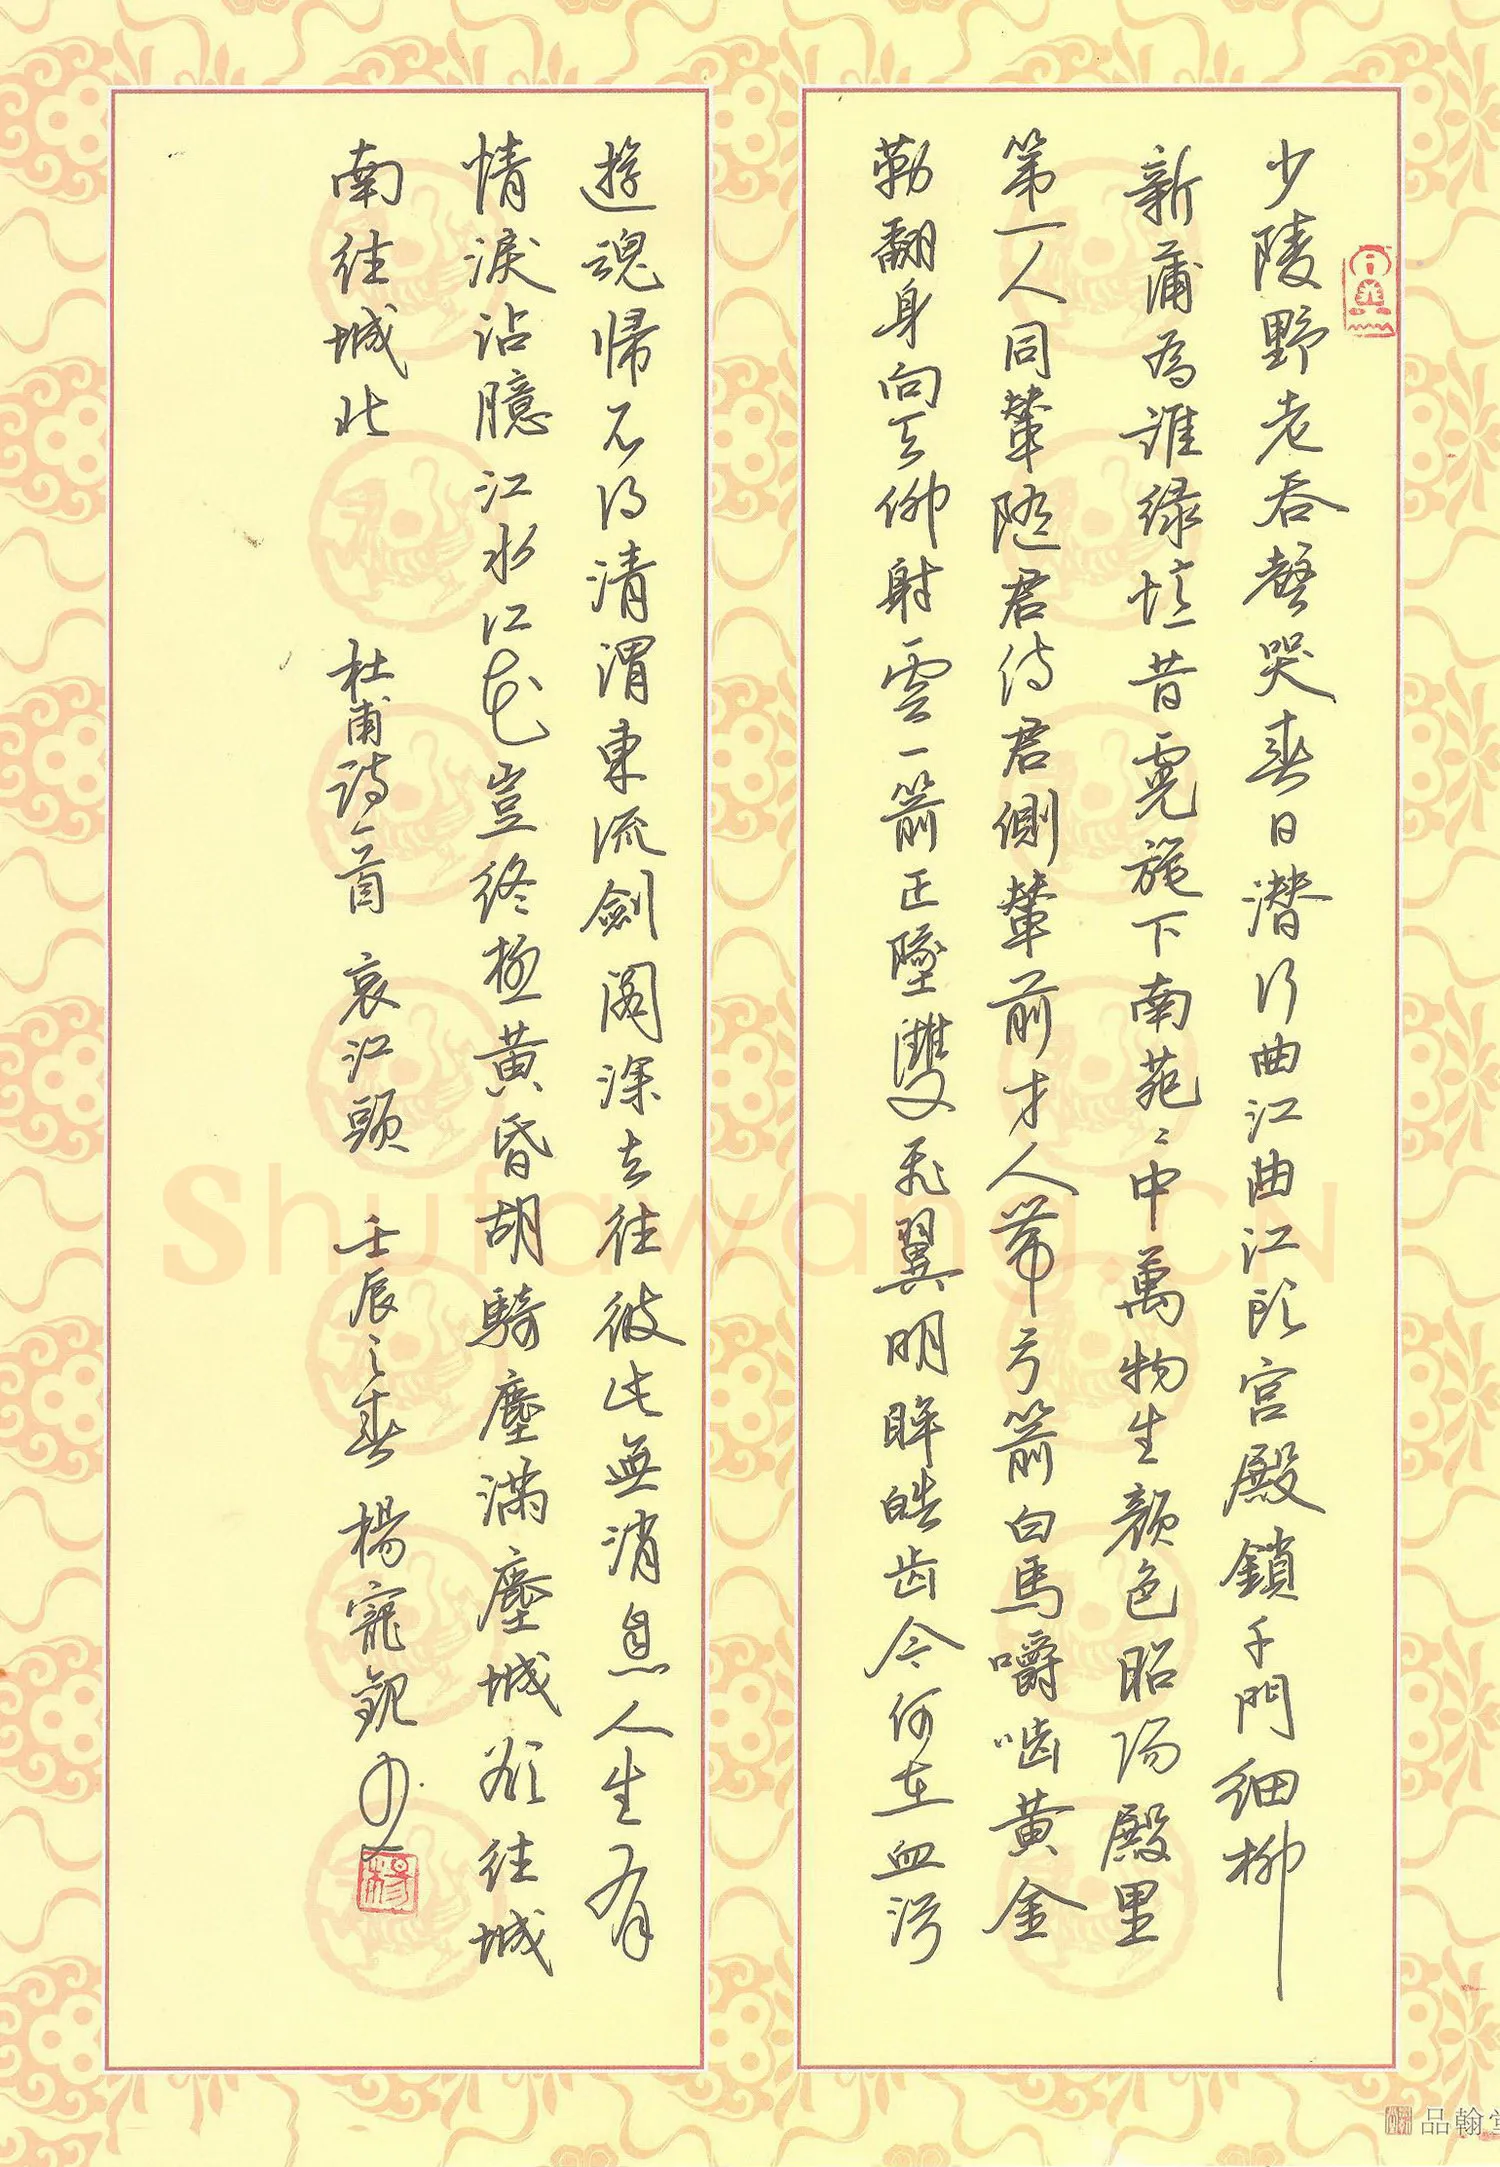 少陵野老吞聲哭春日潛行曲江曲江頭宮殿鎖千門細柳
新蒲為誰緑憶昔霓旌下南苑〻中萬物生顏色昭陽殿里
第一人同輦隨君侍君側輦前才人帶弓箭白馬嚼嚙黃金
勒翻身向天仰射雲一箭正墜雙飛翼明眸皓齒今何在血污
遊魂歸不得清渭東流劍閣深去住彼此無消息人生有
情淚沾臆江水江花豈終極黃昏胡騎塵滿塵城欲往城
南往城北
杜甫詩一首 哀江頭 壬辰之春 楊寵
楊
Shufawang.CN
品翰堂